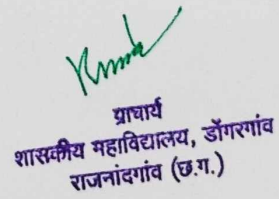 प्राचार्य
शासकीय महाविद्यालय, डोंगरगांव
राजनांदगांव (छ.ग.)